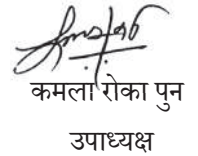 कमला रोका पुन
उपाध्यक्ष